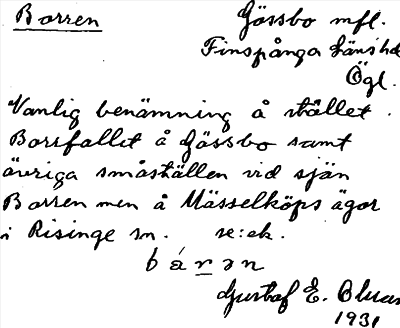 Borren Gössbo mfl.
Finspånga läns hd
Ögl.
Vanlig benämning å stället.
Borrfallet å Gössbo samt
övriga småställen vid sjön
Borren men å Mässelköps ägor
i Risinge sn. se: ek.
b á r ə n
Gustaf E.
1931